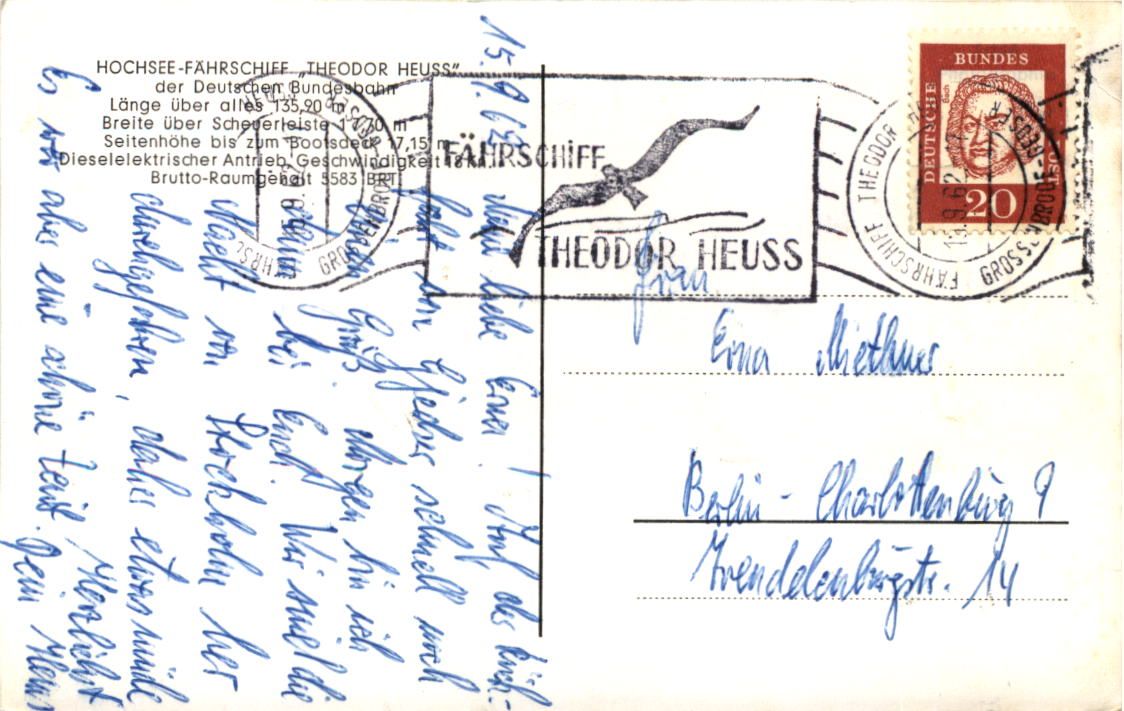 HOCHSEE-FÄHRSCHIFF „THEODOR HEUSS“
der Deutschen Bundesbahn
Länge über alles 135,90 m
Breite über Scheuerleiste 17,70 m
Seitenhöhe bis zum Bootsdeck 17,15 m
Dieselelektrischer Antrieb, Geschwindigkeit 18 kn
Brutto-Raumgehalt 5583 BRT
15.9.62
Meine liebe Erna! Auf der Rück-
fahrt von Gjedser schnell noch
einen Gruß. Morgen bin ich
dann bei Euch. Wir sind die
Nacht von Stockholm her
durchgefahren, daher etwas müde
Es war aber eine schöne Zeit. Herzlichst
Dein
FÄHRSCHIFF
THEODOR HEUSS
FÄHRSCHIFF THEODOR HEUSS
GROSSENBRODE-GEDSER
15.9.62
DEUTSCHE
BUNDES
POST
Bach
20
Frau
Erna Miethner
Berlin-Charlottenburg 9
Trendelenburgstr. 14